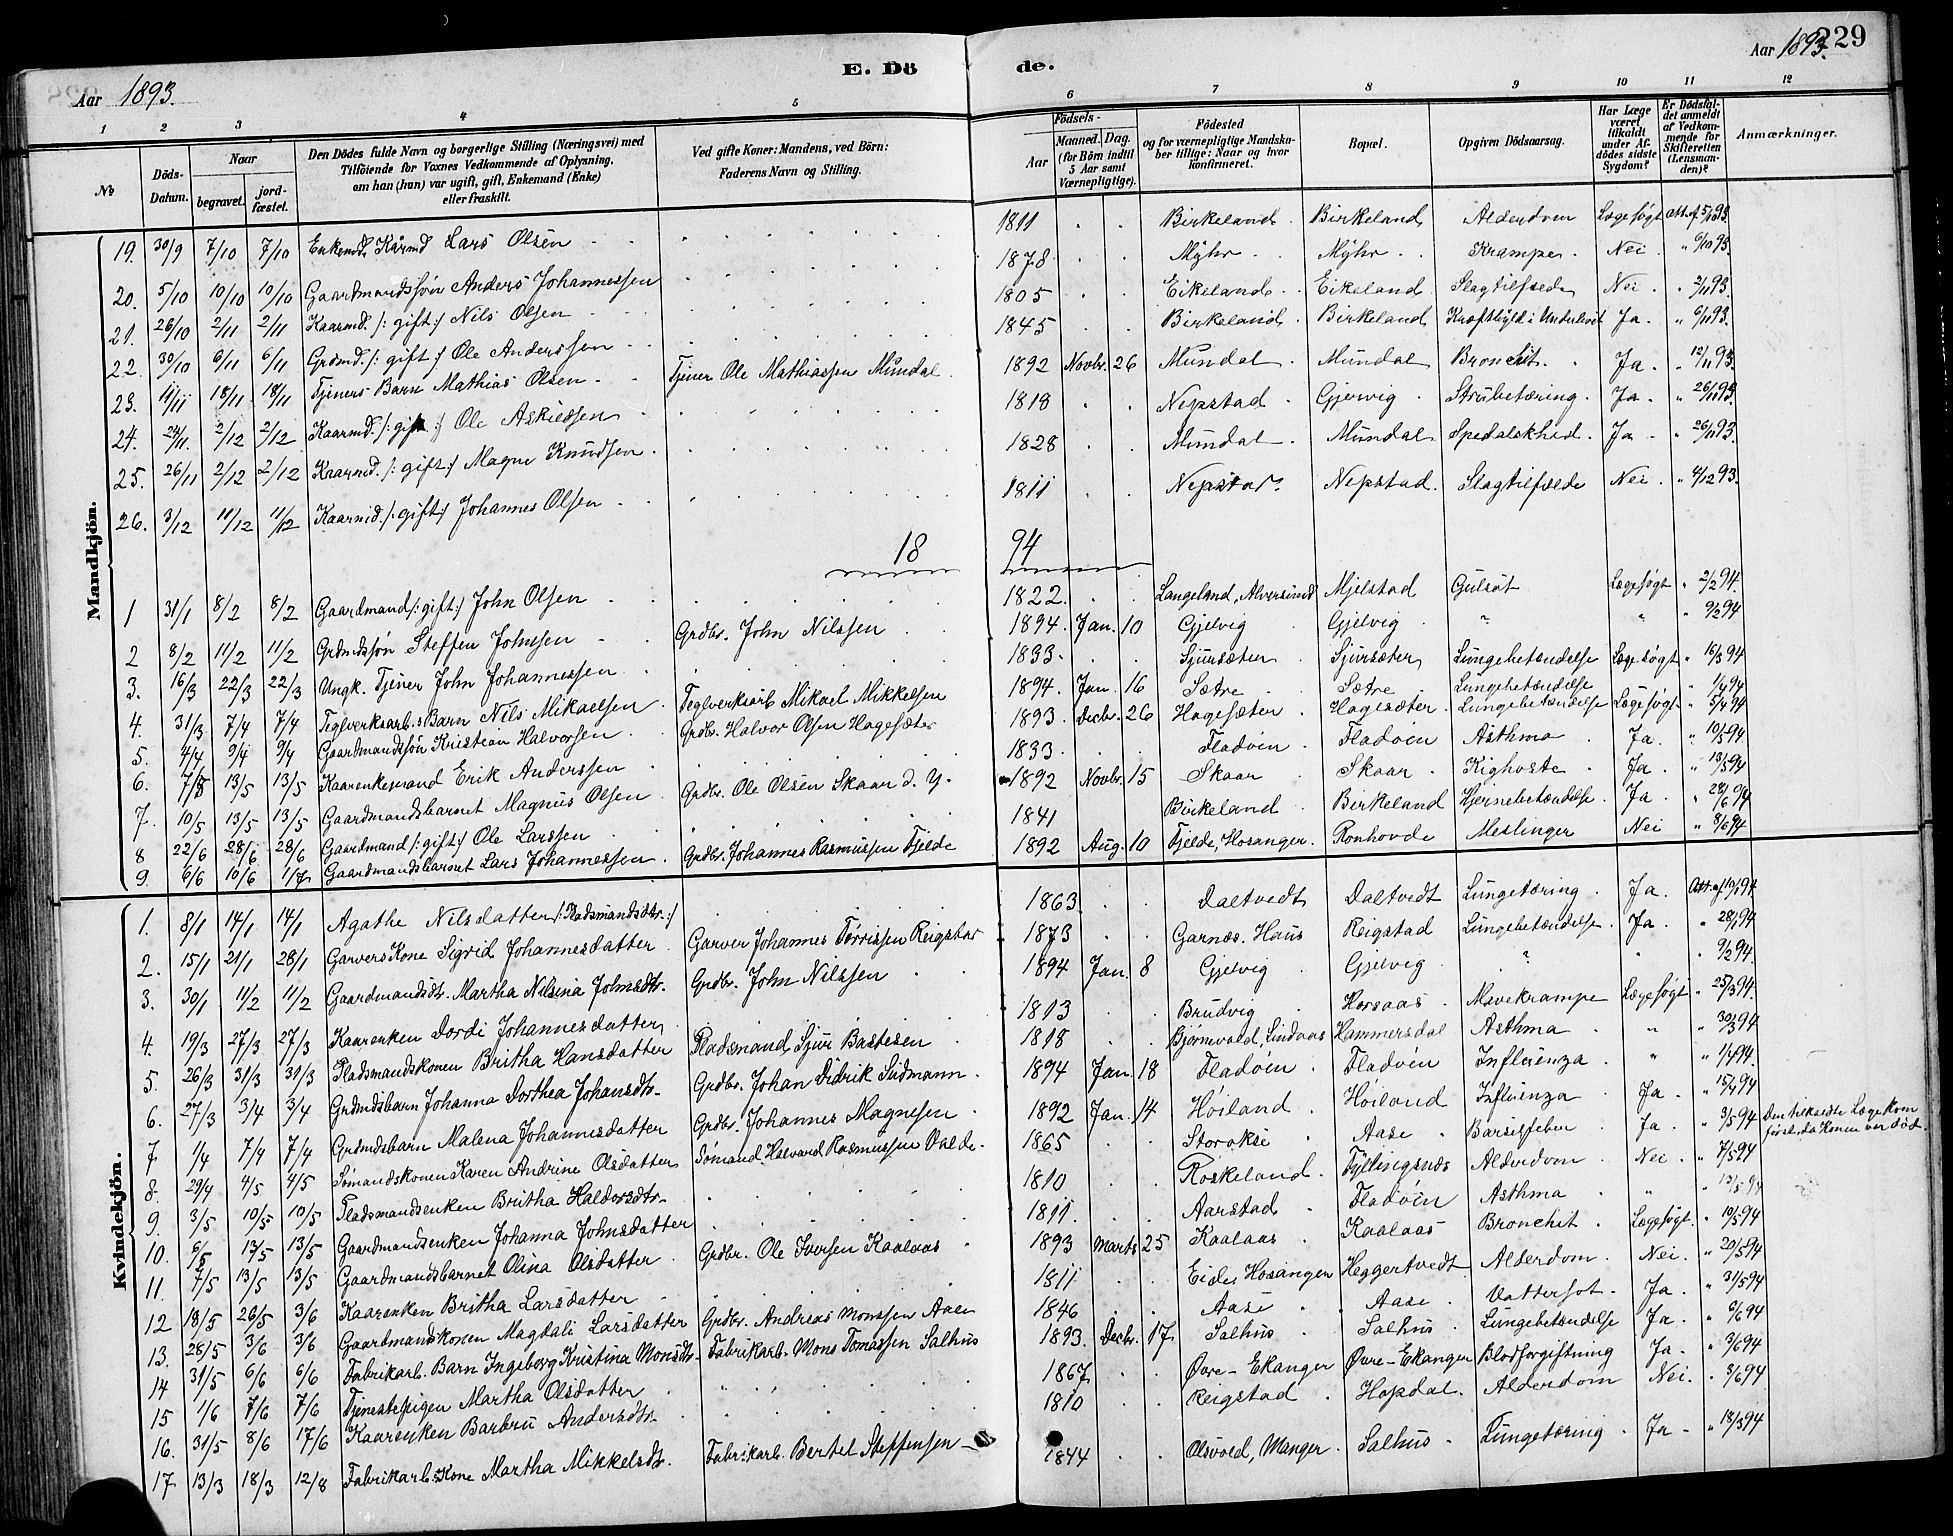 Aar 1893.
E. Dö
de.
Aar 1893.
229
1 2 3 4 5 6 7 8 9 10 11 12
№
Döds-Datum.
Naar
begravet.
jord-fæstet.
Den Dödes fulde Navn og borgerlige Stilling (Næringsvei) med
Tilföiende for Voxnes Vedkommende af Oplysning,
om han (hun) var ugift, gift, Enkemand (Enke)
eller fraskilt.
Ved gifte Koner: Mandens, ved Börn:
Faderens Navn og Stilling.
Födsels-
Aar
Maaned. Dag.
(for Börn indtil
5 Aar samt
Værnepligtige).
Födested
og for værnepligtige Mandska-
ber tillige: Naar og hvor
konfirmeret.
Bopæl.
Opgiven Dödsaarsag.
Har Læge
været
tilkaldt
under Af-
dödes sidste
Sygdom?
Er Dödsfal-
det anmeldt
af Vedkom-
mende for
Skifteretten
(Lensman-
den)?
Anmærkninger.
Mandkjön.
19. 30/9 7/10 7/10 Enkemd. Kårmd Lars Olsen 1811 Birkeland Birkeland Alderdom Lægesøgt Att. af 5/10 93.
20. 5/10 10/10 10/10 Gaardmandssøn Anders Johannessen 1878 Myhr Myhr Krampe Nei " 6/10 93.
21. 26/10 2/11 2/11 Kaarmd. /: gift :/ Nils Olsen 1805 Eikeland Eikeland Slagtilfælde Nei " 2/11 93.
22. 30/10 6/11 6/11 Grdmd. /: gift :/ Ole Anderssen 1845 Birkeland Birkeland Kræftbyld i Underlivet Ja " 6/11 93.
23. 11/11 18/11 18/11 Tjeners Barn Mathias Olsen Tjener Ole Mathiassen Mundal 1892 Novbr. 26 Mundal Mundal Bronchit. Ja. " 12/11 93.
24. 24/11. 2/12 2/12 Kaarmd. /: gift :/ Ole Askildsen 1818 Nepstad Gjervig Strubetæring. Ja. " 26/11 93.
25. 26/11 2/12 2/12 Kaarmd. /: gift :/ Magne Knudsen 1828 Mundal Mundal Spedalskhed. Ja " 26/11 93.
26. 3/12 11/12 11/12 Kaarmd. /: gift :/ Johannes Olsen 1811 Nepstad Nepstad. Slagtilfælde Nei " 4/12 93.
18 94
1 31/1 8/2 8/2 Gaardmand /: gift :/ John Olsen 1822. Langeland, Alversund Mjelstad Gulsot Lægesøgt " 2/2 94.
2 8/2 11/2 11/2 Grdmdssøn Steffen Johnsen Grdbr. John Nilssen 1894. Jan. 10 Gjelvig Gjelvig " " " 9/2 94
3. 16/3 22/3 22/3 Ungk. Tjener John Johannessen 1833. Sjursæter Sjursæter Lungebetændelse Lægesøgt " 16/3 94
4. 31/3 7/4 7/4 Teglverksarb.s Barn Nils Mikaelsen Teglverksarb Mikael Mikkelsen 1894. Jan. 16 Sætre Sætre Lungebetændelse " 1/4 94
5. 4/4 9/4 9/4 Gaardmandssøn Kristian Halvorsen Grdbr. Halvor Olsen Hagesæter 1893. Decbr. 26 Hagesæter Hagesæter Lungebetændelse Lægesøgt " 5/4 94
6. 7/5 13/5 13/5 Kaarenkemand Erik Anderssen 1833. Fladøen Fladøen Asthma Ja. " 10/5 94
7. 10/5 13/5 13/5 Gaardmandsbarnet Magnus Olsen Grdbr. Ole Olsen Skaar d. Y. 1892 Novbr. 15 Skaar Skaar Kighoste Ja " 13/5 94
8 22/6 28/6 28/6 Gaardmand /: gift :/ Ole Larssen 1841 Birkeland Birkeland Hjernebetændelse Ja " 28/6 94
9. 6/6 10/6 1/7 Gaardmandsbarnet Lars Johannessen Grdbr. Johannes Rasmussen Fjelde 1892 Aug. 10 Fjelde, Hosanger. Ronhovde Meslinger Nei " 8/6 94
Kvindekjön.
1. 8/1 14/1 14/1 Agathe Nilsdatter /: Pladsmandsdtr. :/ 1863 Daltvedt Daltvedt Lungetæring Ja Att. af 10/1 94
2. 15/1 21/1 28/1 Garvers Kone Sigrid Johannesdatter Garver Johannes Tørrissen Reigstad 1873 Garnæs. Haus Reigstad Lungebetændelse Ja. " 28/1 94
3. 30/1 11/2 11/2 Gaardmandsdtr. Martha Nilsina Johnsdtr. Grdbr. John Nilssen 1894 Jan. 8 Gjelvig Gjelvig " " " 9/2 94.
4. 19/3 27/3 27/3 Kaarenken Dordi Johannesdatter 1813 Brudvig Horsaas Mavekrampe Lægesøgt " 25/3 94.
5. 26/3 31/3 31/3 Pladsmandskonen Britha Hansdatter Pladsmand Sjur Bastesen 1818 Bjørnvold, Lindaas Hammersdal Asthma " " 30/3 94
6. 27/3 3/4 3/4 Grdmdsbarn Johanna Dorthea Johansdtr. Grdbr. Johan Didrik Sudmann 1894 Jan. 18 Fladøen Fladøen Influenza " " 1/4 94.
7 1/4 7/4 7/4 Grdmdsbarn Malena Johannesdatter Grdbr. Johannes Magnesen 1892 Jan. 14 Høiland Høiland Influenza Ja " 15/4 94
8. 29/4 4/5 4/5 Sømandskonen Karen Andrine Olsdatter Sømand. Halvard Rasmussen Valde 1865 Storokse Aase Barselfeber Ja " 3/5 94 Den tilkaldte Læge kom
først, da Konen var død.
9. 3/5 10/5 10/5 Pladsmandsenken Britha Haldorsdtr. 1810 Røskeland Fyllingsnæs Alderdom Nei " 7/5 94
10. 6/5 13/5 13/5 Gaardmandsenken Johanna Johnsdatter 1811. Aarstad Fladøen Asthma " " 13/5 94
11. 7/5 13/5 13/5 Gaardmandsbarnet Olina Olsdatter Grdbr. Ole Iversen Kaalaas 1893 Marts 25 Kaalaas Kaalaas Bronchit Lægesøgt. " 10/5 94
12 18/5 26/5 3/6 Kaarenken Britha Larsdatter 1811 Eide, Hosanger Heggertvedt Alderdom Nei. " 20/5 94
13. 28/5 3/6 3/6 Gaardmandskonen Magdali Larsdatter Grdbr. Andreas Monssen Aase 1846 Aase Aase Vattersot Ja " 31/5 94
14 31/5 6/6 6/6 Fabrikarb. Barn Ingeborg Kristina Monsdtr. Fabrikarb. Mons Tomassen Salhus 1893. Decbr. 17. Salhus Salhus Lungebetændelse Ja " 6/6 94
15 1/6 7/6 7/6 Tjenestepigen Martha Olsdatter 1867 Øvre-Ekanger Øvre-Ekanger Blodforgiftning Ja " 3/6 94
16. 31/5 8/6 17/6 Kaarenken Barbru Andersdtr. 1810 Reigstad Hopdal. Alderdom Nei. " 3/6 94
17 13/3 18/3 12/8 Fabrikarb. Kone Martha Mikkelsdtr. Fabrikarb. Bertel Steffensen 1844 Olsvold, Manger Salhus Lungetæring Ja " 18/3 94